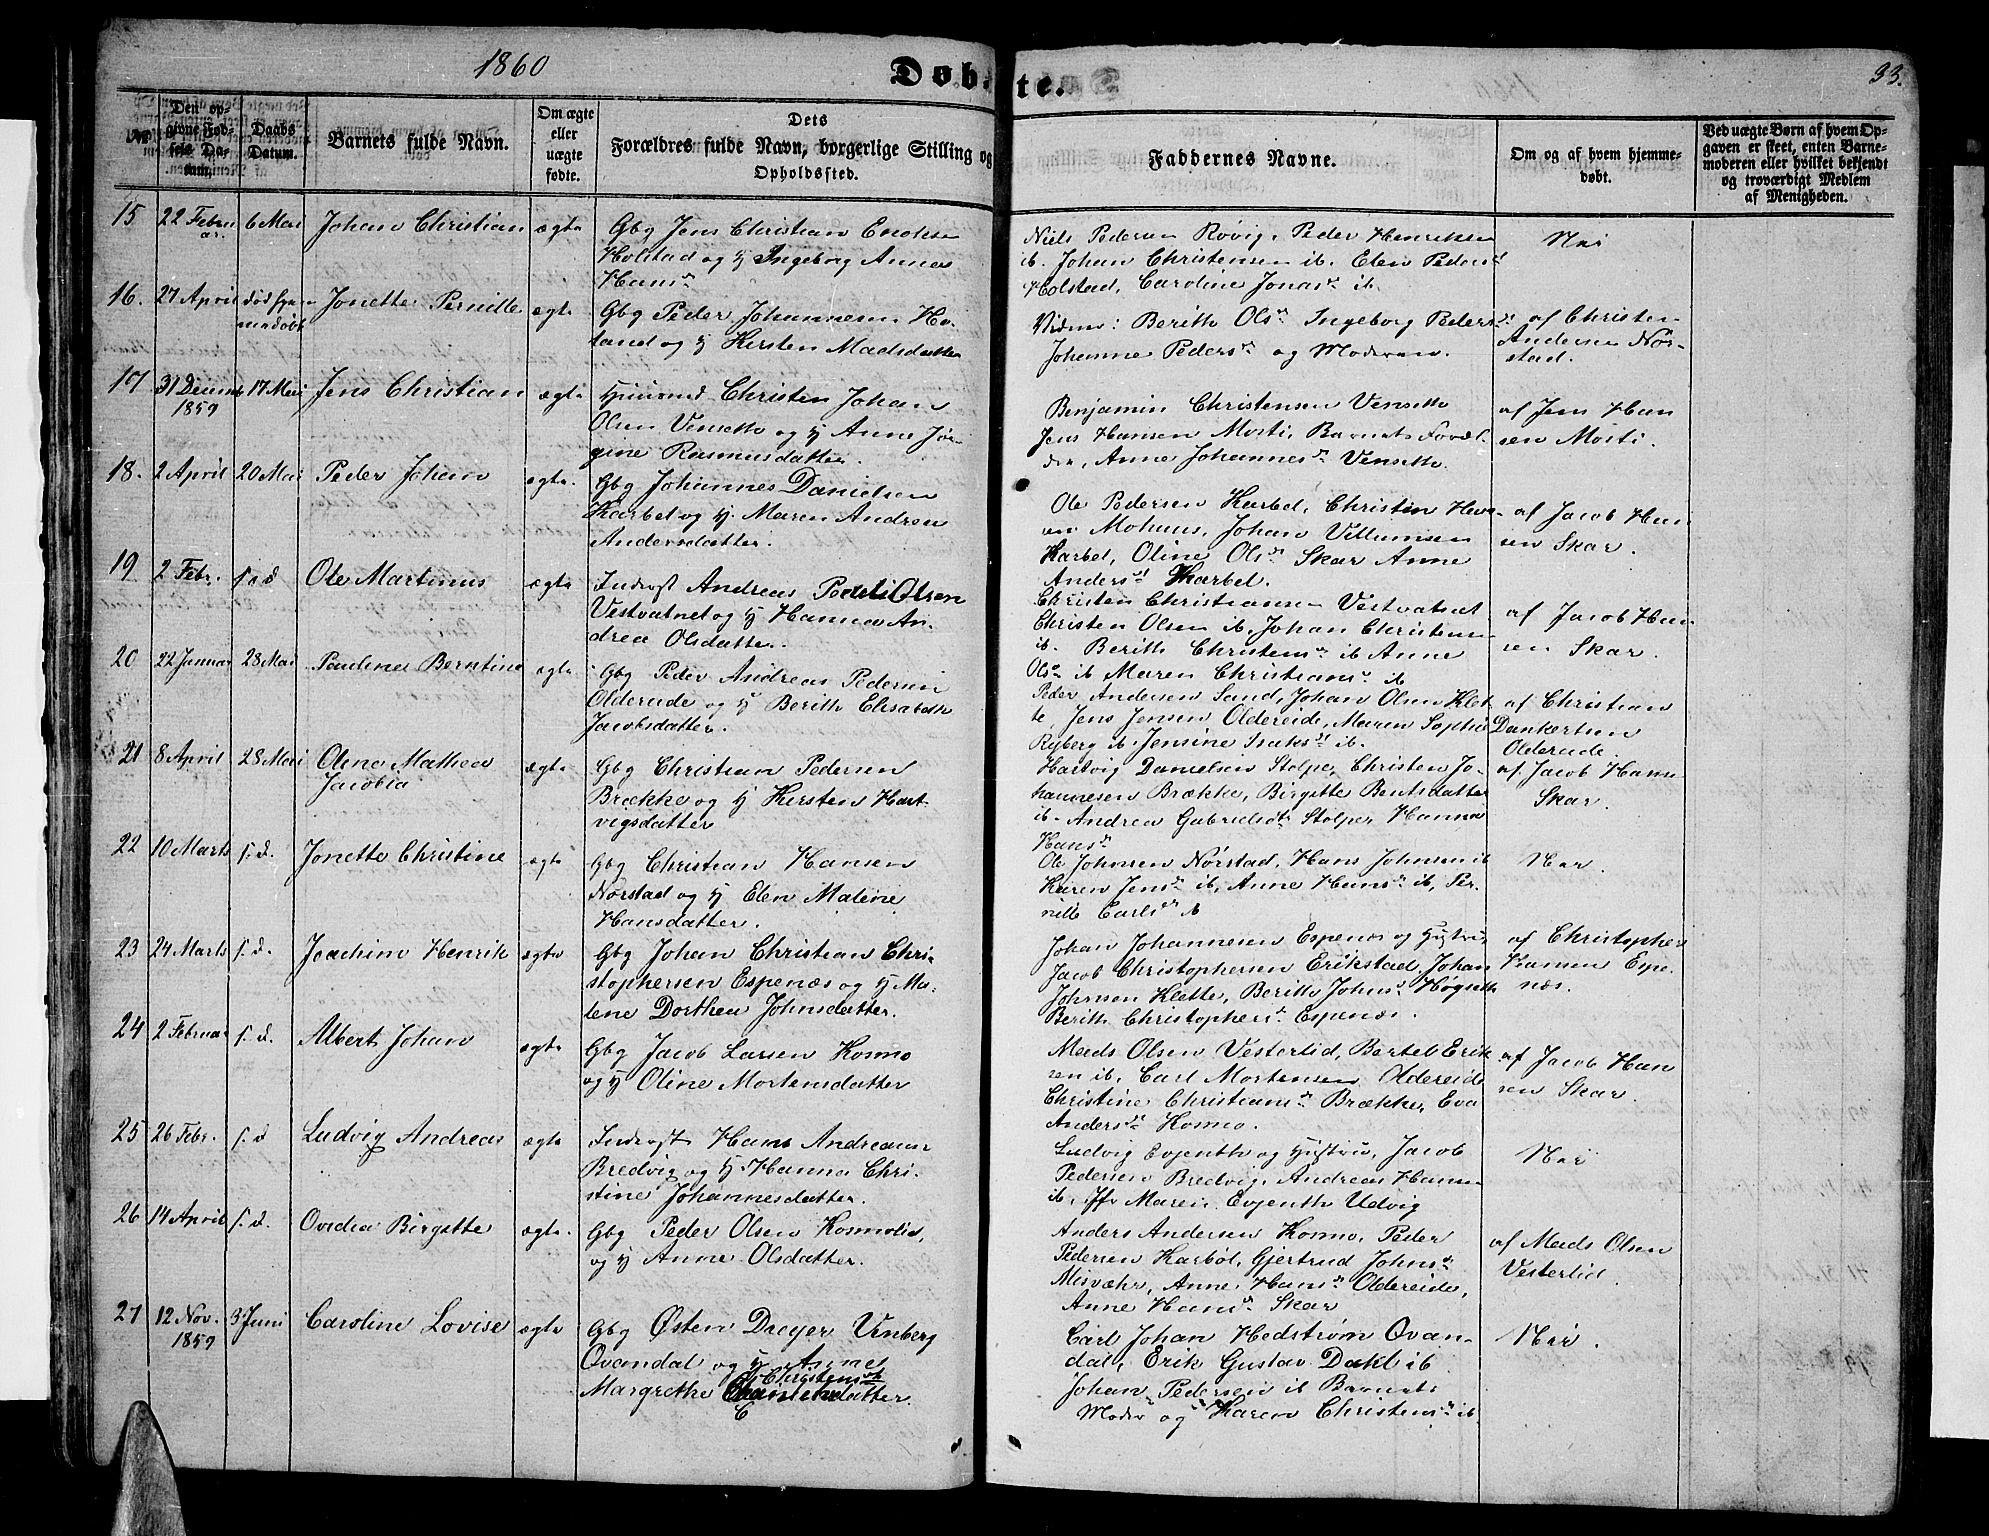 1860
Døbte.
33.
No
Den opgivne Fødsels Datum.
Daabs Datum.
Barnets fulde Navn.
Om ægte eller uægte fødte.
Dets Forældres fulde Navn, borgerlige Stilling og Opholdssted.
Faddernes Navne.
Om og af hvem hjemmedøbt.
Ved uægte Børn af hvem Opgaven er skeet, enten Barnemoderen eller hvilket bekjendt og troværdigt Medlem af Menigheden.
15 22 Februar. 6 Mai Johan Christian ægte
Gbg Jens Christian Enoksen
Holstad og H Ingeborg Anna
Hansdr
Niels Pedersen Røvig, Peder Henriksen
ib. Johan Christensen ib. Elen Pedersdr
Holstad, Caroline Jonasdr ib.
Nei
16. 27 April Jonette Pernille ægte
Gbg Peder Johannesen Ho-
land og H Kirsten Madsdatter
Vidner: Berith Olsdr Ingeborg Pedersdr
Johanne Pedersdr og Moderen.
af Christen
Andersen Nor-
stad.
17 31 Decemb 1859 17 Mai Jens Christian ægte
Huusmd Christen Johan
Olsen Vensetb og H Anne Jør-
gine Rasmusdatter.
Benjamin Christensen Venseth
Jens Hansen Mosti, Barnets Foræl-
dre, Anne Johannesdr Venseth.
af Jens Han
sen Mosti.
18. 2 April 20 Mai Peder Johan ægte.
Gbg Johannes Danielsen
Karbøl og H. Maren Andrea
Andersdatter.
Ole Pedersen Karbøl, Christin Han-
sen Mohuus, Johan Villumsen
Karbøl, Oline Olsdr Skar Anne
Andersdr Karbøl.
af Jacob Han
sen Skar.
19 2 Febr. s. d Ole Martinus ægte
Inderst Andreas Olsen
Vestvatnet og H Hanna An-
drea Olsdatter.
Christen Christiansen Vestvatnet
Christen Olsen ib, Johan Christensen
ib. Berith Christensdr ib Anne
Olsdr ib Maren Christiansdr ib
af Jacob Han
sen Skar.
20 22 Januar 28 Mai Paulina Berntine ægte
Gbg Peder Andreas Pedersen
Oldereide og H Berith Elisabeth
Jacobsdatter.
Peder Andersen Sand, Johan Olsen Klet-
te, Jens Jensen Oldereide, Maren Sophie
Ryberg ib. Jensine Isaksdr ib.
af Christian
Dankertsen
Oldereide.
21 8 April 28 Mai Olina Mathea
Jacobia ægte
Gbg Christian Pedersen
Brække og H Kirsten Hart-
vigsdatter
Hartvig Danielsen Stolpe, Christen Jo-
hannesen Brække, Birgitte Bentsdatter
ib. Andrea Gabrielsdr Stolpe, Hanna
Hansdr
af Jacob Hansen
Skar.
22 10 Marts s. d. Jonette Christine ægte
Gbg Christian Hansen
Norstad og H Elen Maline
Hansdatter.
Ole Johnsen Nørstad, Hans Johnsen ib
Karen Jensdr ib, Anne Hansdr ib, Per-
nille Carlsdr ib
Nei.
23 24 Marts s. d. Joachim Henrik ægte
Gbg Johan Christian Chri-
stophersen Espenæs og H Ma-
lene Dorthea Johnsdatter.
Johan Johannesen Espenæs og Hustru,
Jacob Christophersen Erikstad, Johan
Johnsen Klette, Berith Johnsdr
Berith Christophersdr Espenæs.
af Christopher
Hansen Espe-
næs.
24 2 Februar s. d. Albert Johan ægte
Gbg Jacob Larsen Kosmo
og H Oline Mortensdatter
Mads Olsen Vesterlid, Bertel Erik
sen ib, Carl Mortensen Oldereide
Christine Christiansdr Brække, Eva
Andersdr Kosmo.
af Jacob Han
sen Skar.
25 26 Febr. s. d Ludvig Andreas ægte
Inderst Hans Andreasen
Bredvig og H Hanna Chri-
stine Johannesdatter.
Ludvig Evjenth og Hustru, Jacob
Pedersen Bredvig, Andreas Hansen
ib, Jfr Maren Evjenth Udvig
Nei
26 14 April s. d. Ovidia Birgitte ægte.
Gbg Peder Olsen Kosmolid,
og H Anne Olsdatter.
Anders Andersen Kosmo, Peder
Pedersen Karbøl, Gjertrud Johnsdr
Misvæhr, Anne Hansdr Oldereide,
Anne Hansdr Skar
af Mads Olsen
Vesterlid.
27 12 Nov. 1859 3 Juni Caroline Lovise ægte
Gbg Østen Dreyer Vinberg
Ovandal og H Anne
Margrethe Christensdtr
Carl Johan Hedstrøm Ovan-
dal, Erik Gustav Dahl ib
Johan Pedersen ib Barnets
Moder og Karen Christensdr ib.
Nei.